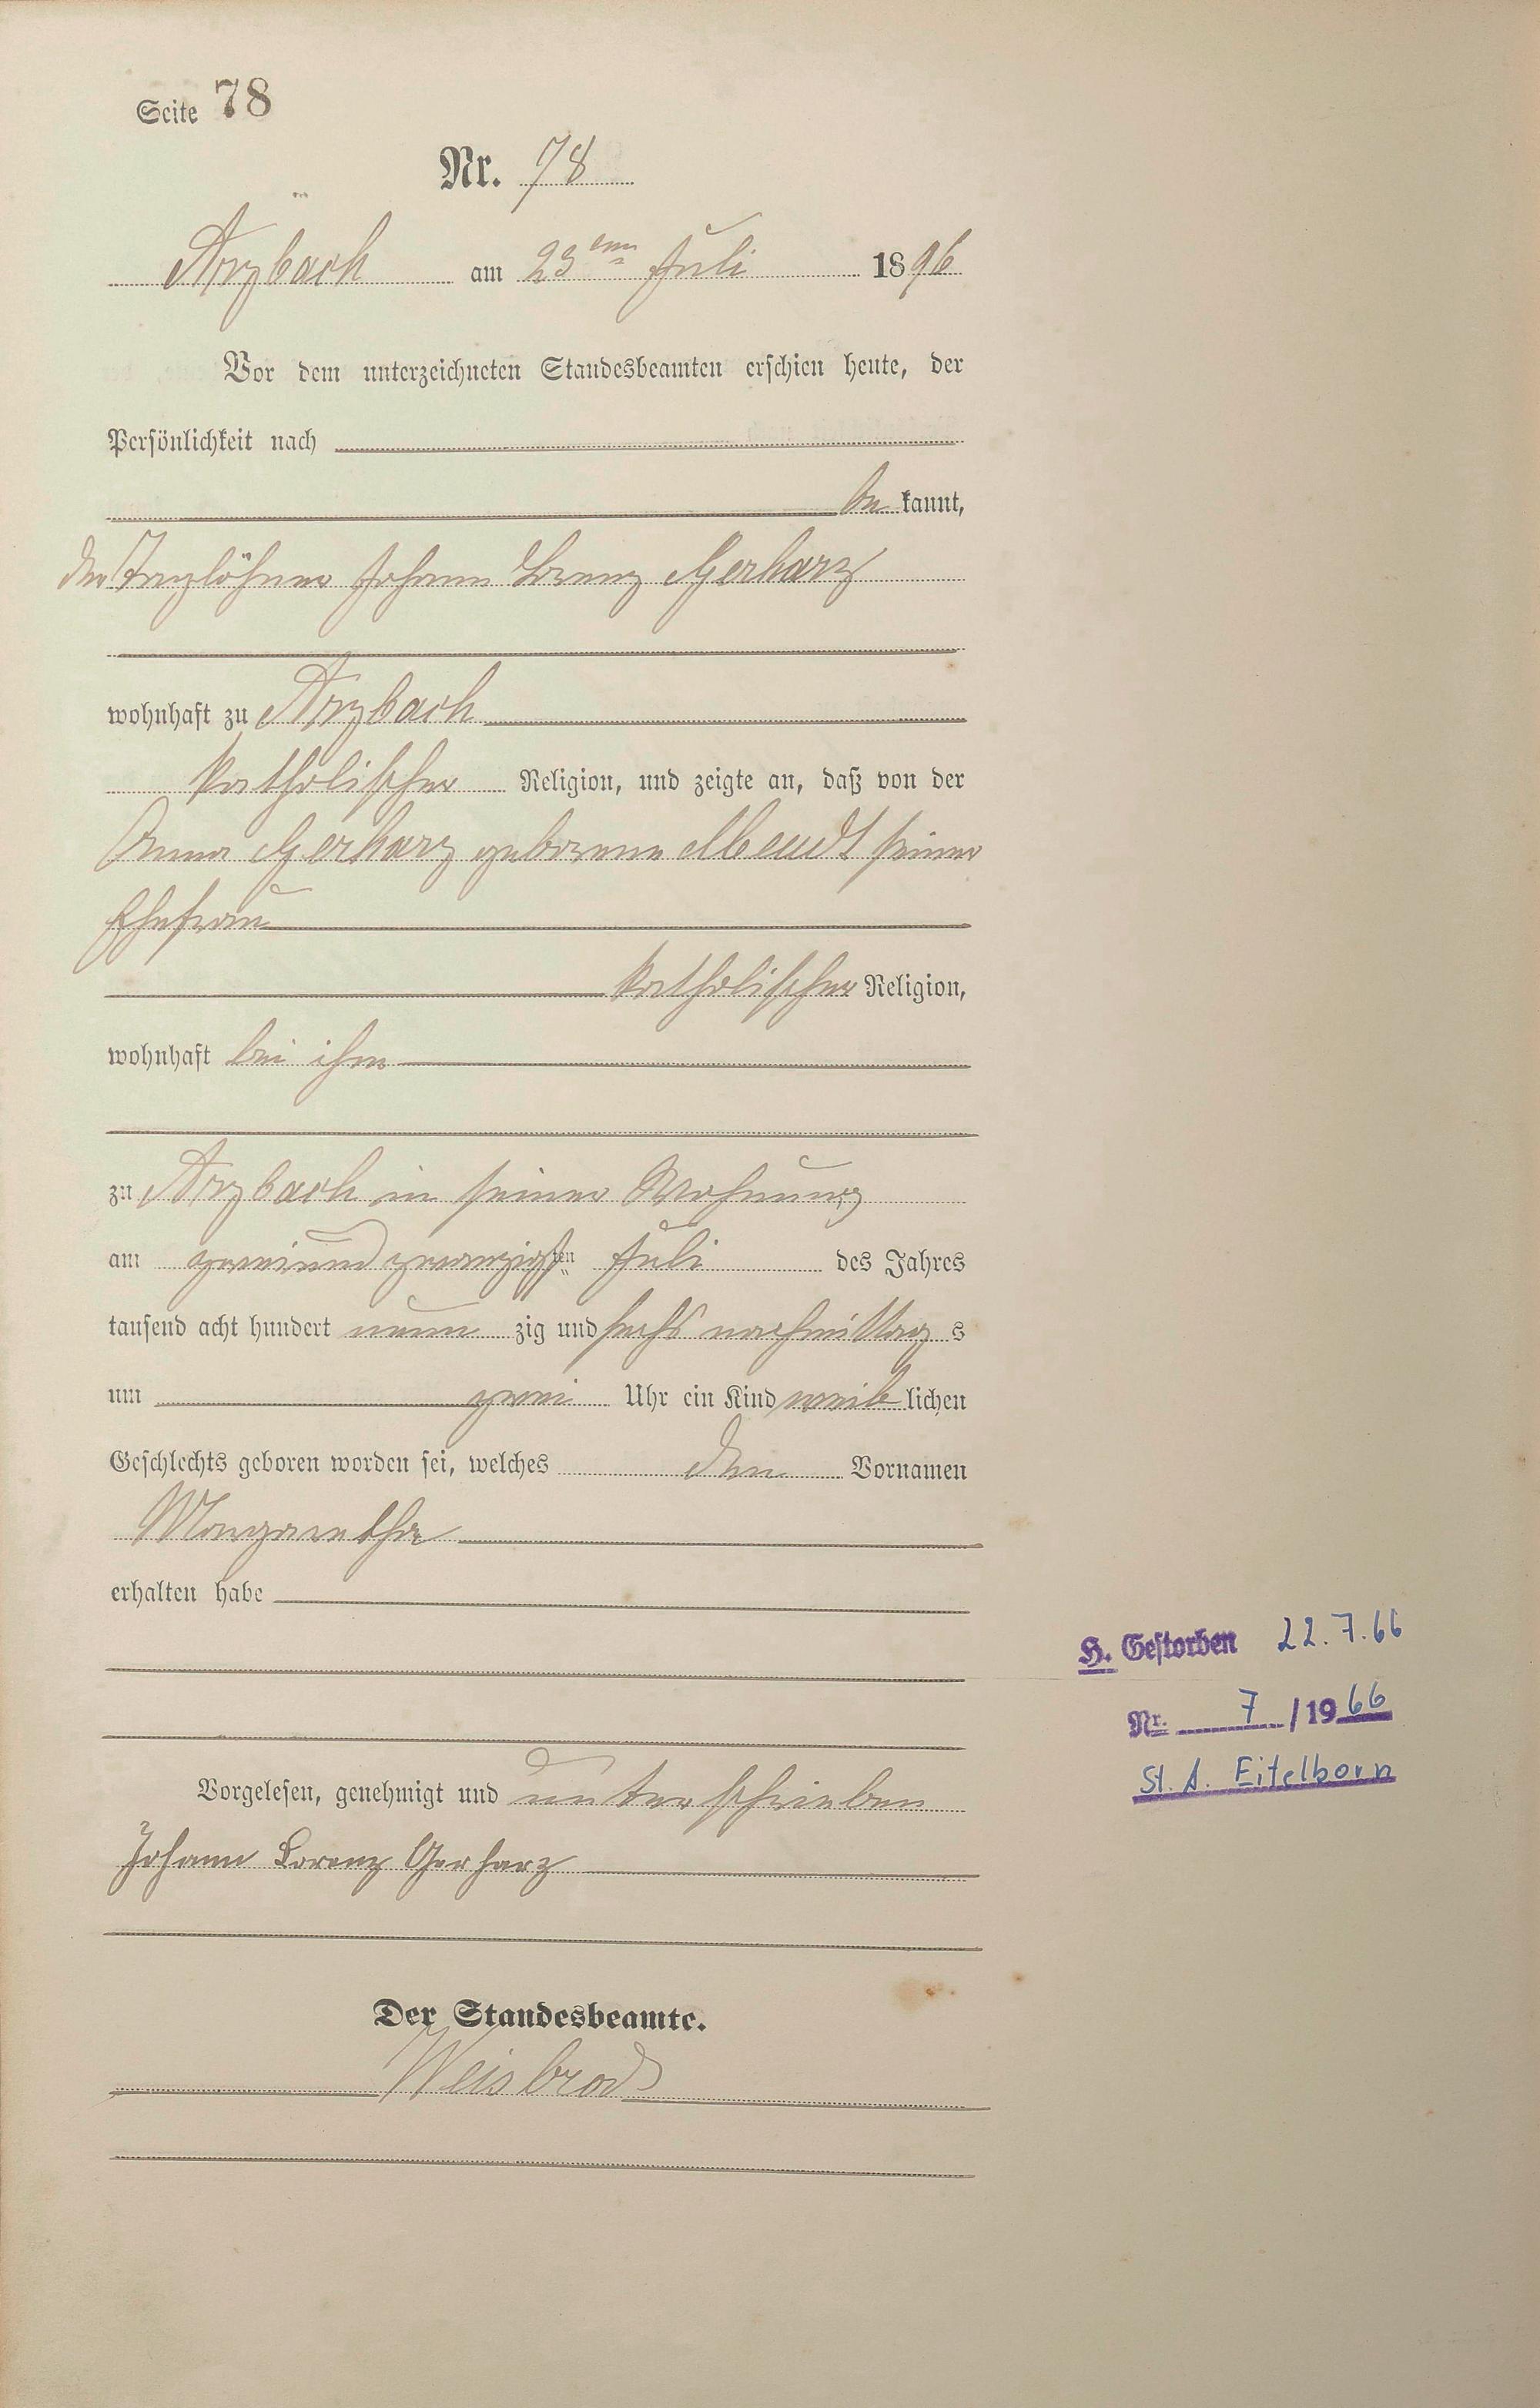 Seite 78
Nr. 78
Arzbach am 23ten Juli 1896
Vor dem unterzeichneten Standesbeamten erschien heute, der
Persönlichkeit nach
be kannt,
der Taglöhner Johann Lorenz Gerharz
wohnhaft zu Arzbach
katholischer Religion, und zeigte an, daß von der
Anna Gerharz geborene seiner
Ehefrau
katholischer Religion,
wohnhaft bei ihm
zu Arzbach in seiner Wohnung
am zweiundzwanzigsten Juli des Jahres
tausend acht hundert neun zig und sechs nachmittag s
um zwei Uhr ein Kind weib lichen
Geschlechts geboren worden sei, welches den Vornamen
Margaretha
erhalten habe
H. Gestorben 22.7.66
Nr. 7 / 1966
St. A. Eitelborn
Vorgelesen, genehmigt und unterschrieben
Johann Lorenz Gerharz
Der Standesbeamte.
Weisbrod